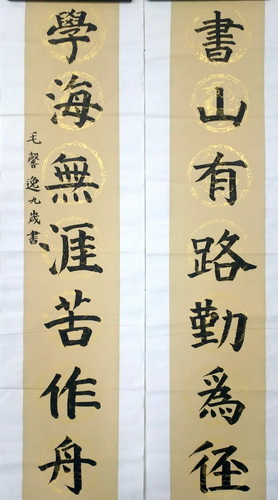 書山有路勤爲徑
學海無涯苦作舟
毛馨逸九歲書